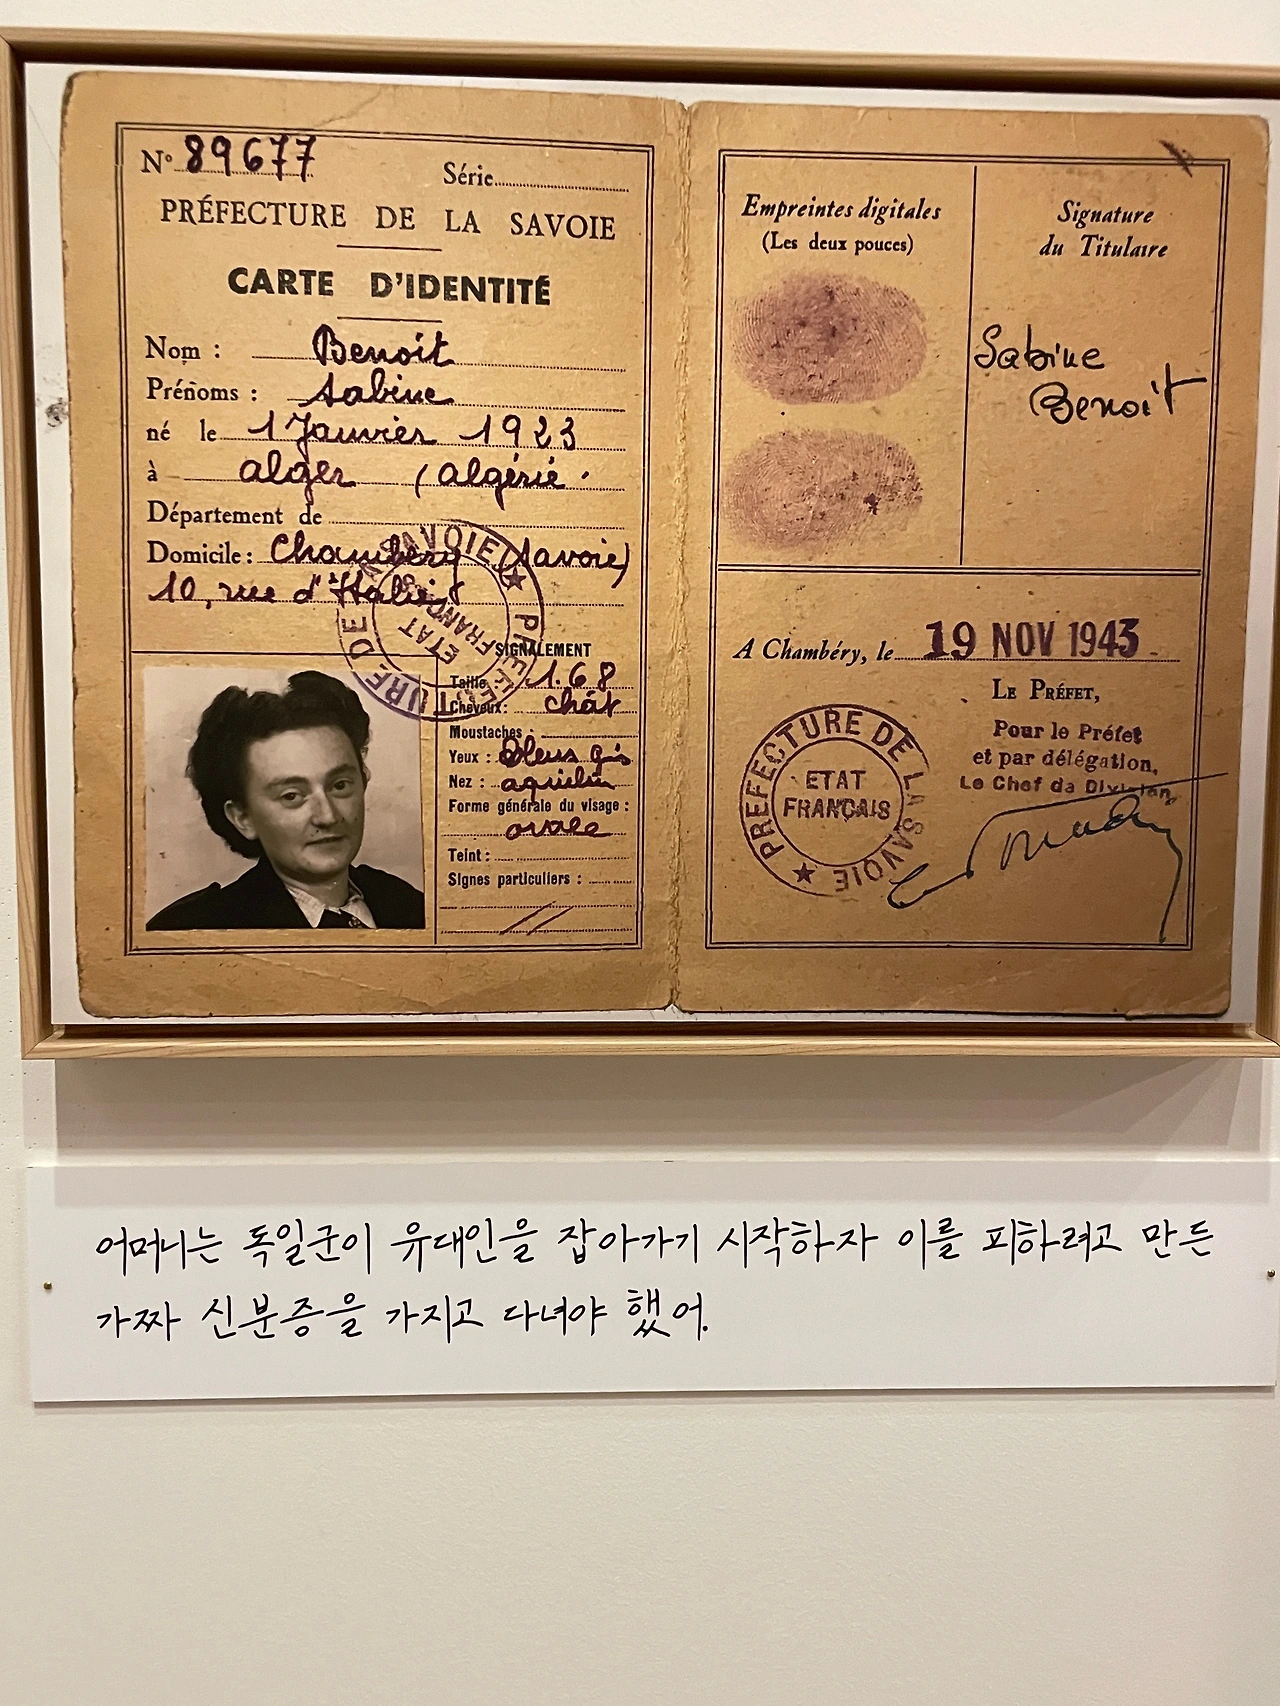 N° 89677
Série
PRÉFECTURE DE LA SAVOIE
CARTE D'IDENTITÉ
Nom : Benoit
Prénoms : Sabine
né le 1 Janvier 1923
à alger (algérie
Département de
Domicile : Chambéry (Savoie)
10, rue d'Italie
PRÉFECTURE DE LA SAVOIE
ETAT FRANÇAIS
SIGNALEMENT
Taille 1.68
Cheveux : chât
Moustaches :
Yeux : bleus gris
Nez : aquilin
Forme générale du visage :
ovale
Teint :
Signes particuliers :
Empreintes digitales
(Les deux pouces)
Signature
du Titulaire
Sabine
Benoit
A Chambéry, le 19 NOV 1943
LE PRÉFET,
Pour le Préfet
et par délégation,
Le Chef de Division,
PREFECTURE DE LA SAVOIE
ETAT
FRANÇAIS
어머니는 독일군이 유대인을 잡아가기 시작하자 이를 피하려고 만든
가짜 신분증을 가지고 다녀야 했어.